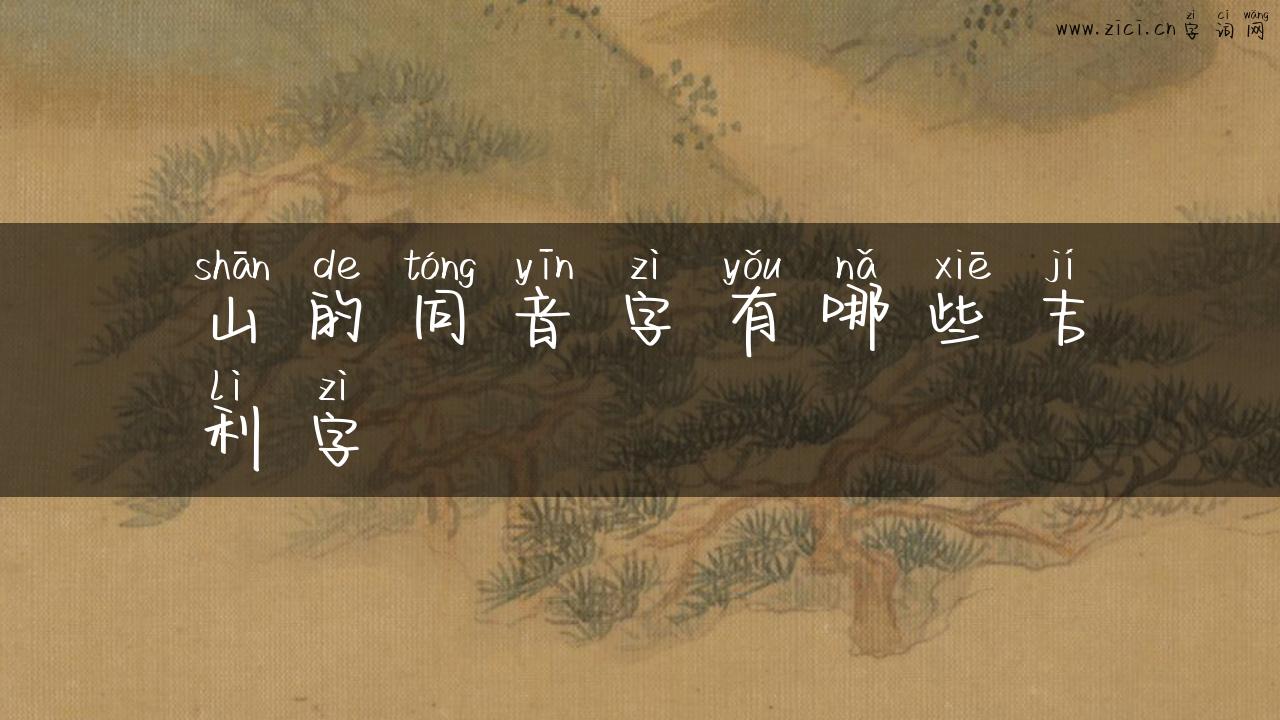 zì cí wǎng
www.zici.cn 字 词 网
shān de tóng yīn zì yǒu nǎ xiē jí
山 的 同 音 字 有 哪 些 吉
lì zì
利 字